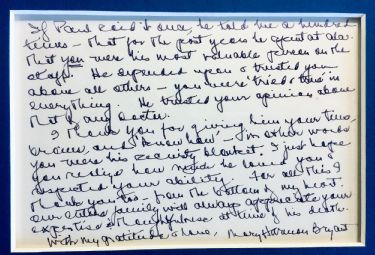 If Paul said it once, he told me a hundred
times – that for the past years he spent at ala.
that you were his most valuable person on the
staff. He depended upon & trusted you
above all others – you were 'tried & true' in
everything. He trusted your opinion above
that of any doctor.
I thank you for giving him your time,
and 'know how' – in other words
you were his security blanket. I just hope
you realize how much he loved you &
respected your ability. For all this I
thank you too – from the bottom of my heart.
Our entire family will always appreciate your
expertise & thoughtfulness at time of his death.
With my gratitude & love, Mary Harmon Bryant